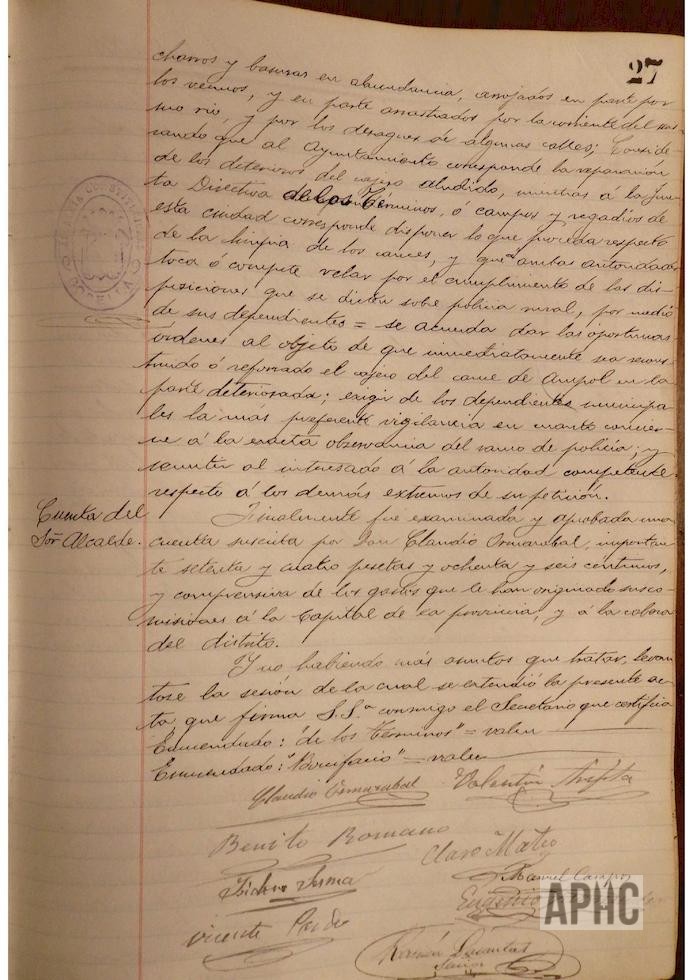 27
charros y basuras en abundancia, arrojados en parte por
los vecinos, y en parte arrastrados por la corriente del mis-
mo rio, y por los desagues de algunas calles; Conside-
rando que al Ayuntamiento corresponde la reparación
de los deterioros del cajero aludido, mientras á la Jun-
ta Directiva de los Términos, ó campos y regadios de
esta ciudad corresponde disponer lo que proceda respecto
de la limpia de los cauces, y que á ambas autoridades
toca ó compete velar por el cumplimiento de las dis-
posiciones que se dicten sobre policia rural, por medio
de sus dependientes = se acuerda dar las oportunas
órdenes al objeto de que inmediatamente sea recons-
truido ó reformado el cajero del cauce de Ampol en la
parte deteriorada; exigir de los dependientes municipa-
les la más preferente vigilancia en cuanto concier-
ne á la exacta observancia del ramo de policia; y
remitir al interesado á la autoridad competente
respecto á los demás extremos de su petición.
Cuenta del
Sor Alcalde.
Finalmente fué examinada y aprobada una
cuenta suscrita por Don Claudio Ormazabal, importan-
te setenta y cuatro pesetas y ochenta y seis centimos,
y comprensiva de los gastos que le han originado sus co-
misiones á la Capital de la provincia, y á la cabeza
del distrito.
Y no habiendo más asuntos que tratar, levan
tose la sesión de la cual se extendió la presente ac-
ta que firma S.Sª conmigo el Secretario que certifica
Enmendado: "de los Términos" = valen
Enmendado: "Bonifacio" = valen
Claudio Ormazabal Valentín
Benito Romano
Claro Mateo
Isidoro
Manuel Campos
Eugenio
Vicente Pardo
Ramón
APHC